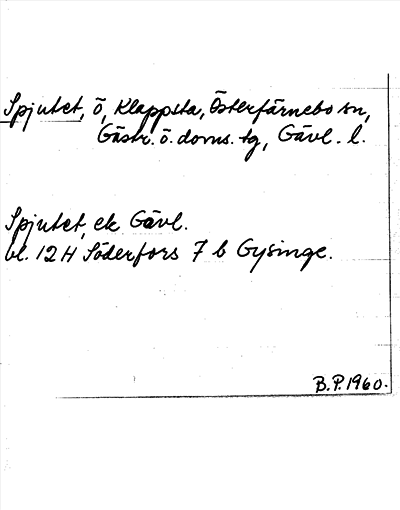 Spjutet, ö, Klappsta, Österfärnebo sn,
Gästr. ö. doms. tg, Gävl. l.
Spjutet, ek Gävl.
bl. 12 H Söderfors 7 b Gysinge.
B.P. 1960.